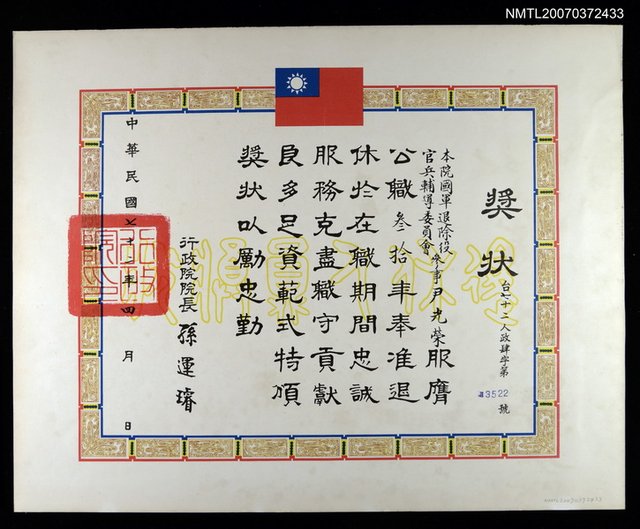 NMTL20070372433
獎狀
台七十二人政肆字第
3522
號
本院國軍退除役
官兵輔導委員會參事尹光榮服膺
公職叁拾年奉准退
休於在職期間忠誠
服務克盡職守貢獻
良多足資範式特頒
獎狀以勵忠勤
行政院院長孫運璿
中華民國七十二年四月日
行政院印
NMTL20070372433